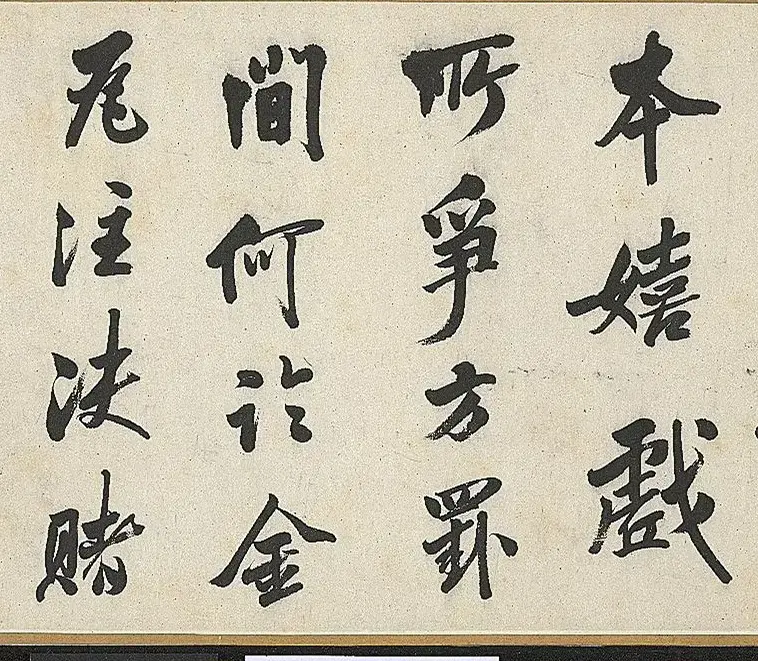 本嬉戲
所爭方罫
間何論金
瓦注決賭